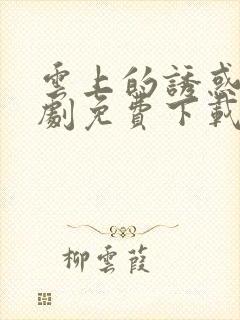 雲上的誘惑
劇免費下載
柳雲葭